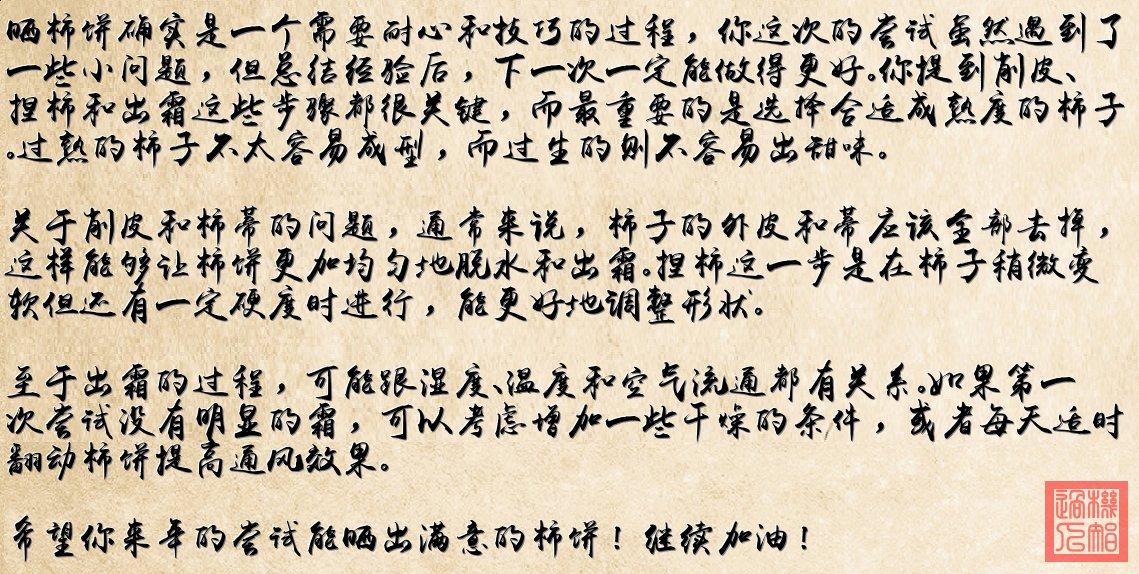 晒柿饼确实是一个需要耐心和技巧的过程，你这次的尝试虽然遇到了
一些小问题，但总结经验后，下一次一定能做得更好。你提到削皮、
捏柿和出霜这些步骤都很关键，而最重要的是选择合适成熟度的柿子
。过熟的柿子不太容易成型，而过生的则不容易出甜味。
关于削皮和柿蒂的问题，通常来说，柿子的外皮和蒂应该全部去掉，
这样能够让柿饼更加均匀地脱水和出霜。捏柿这一步是在柿子稍微变
软但还有一定硬度时进行，能更好地调整形状。
至于出霜的过程，可能跟湿度、温度和空气流通都有关系。如果第一
次尝试没有明显的霜，可以考虑增加一些干燥的条件，或者每天适时
翻动柿饼提高通风效果。
希望你来年的尝试能晒出满意的柿饼！继续加油！